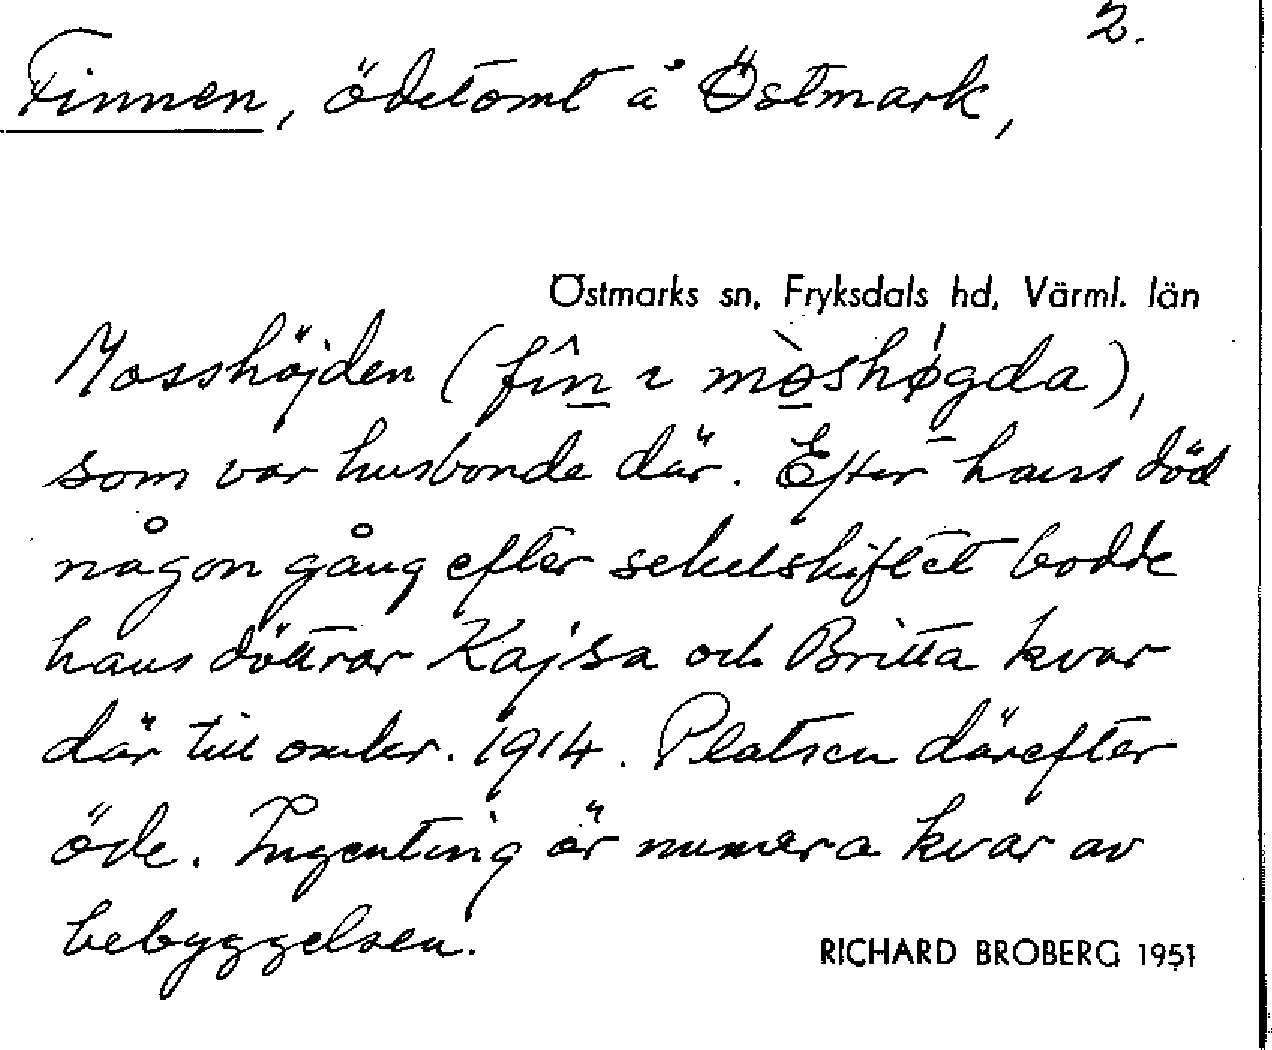 2.
Finnen, ödetomt å Östmark,
Östmarks sn, Fryksdals hd, Värml. län
Mosshöjden (fîn̲ ɩ mò̲shǿgda),
som var husbonde där. Efter hans död
någon gång efter sekelskiftet bodde
hans döttrar Kajsa och Britta kvar
där till omkr. 1914. Platsen därefter
öde. Ingenting är numera kvar av
bebyggelsen.
RICHARD BROBERG 1951